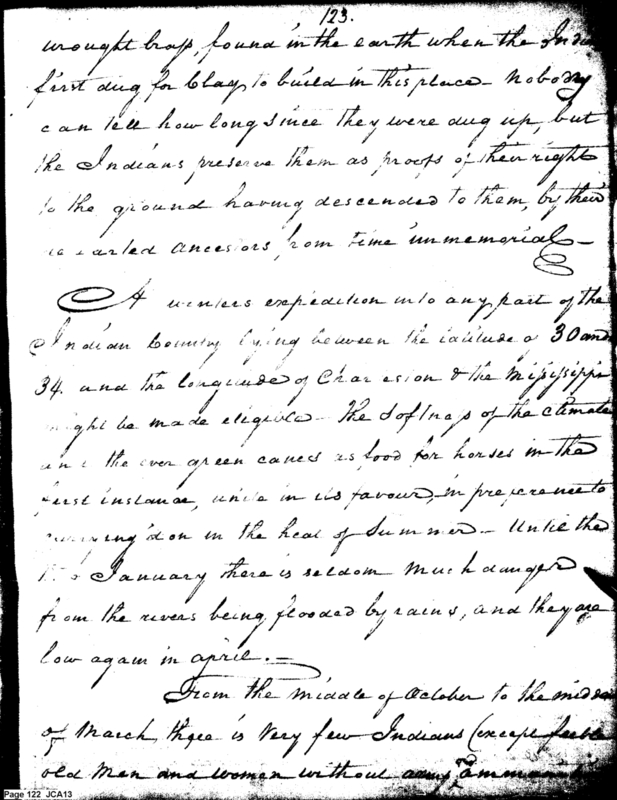 123.
wrought brass, found in the earth when the
first dug for Clay to build in this place – Nobody
can tell how long since they were dug up, but
the Indians preserve them as proofs of their right
to the ground having descended to them, by their
ancestors, from time unmemorial –
A winters expedition into any part of the
Indian Country lying between the latitude of 30 and
34. and the longitude of Charleston & the Mississippi
might be made eligible – the Softness of the climate
and the ever green canes as food for horses in the
first instance, unite in its favour, in preference to
on in the heat of Summer – Until the
January there is seldom much danger
from the rivers being flooded by rains, and they are
low again in april. –
From the middle of October to the
of March, there is very few Indians (except feeble
old men and women without
Page 122 JCA13